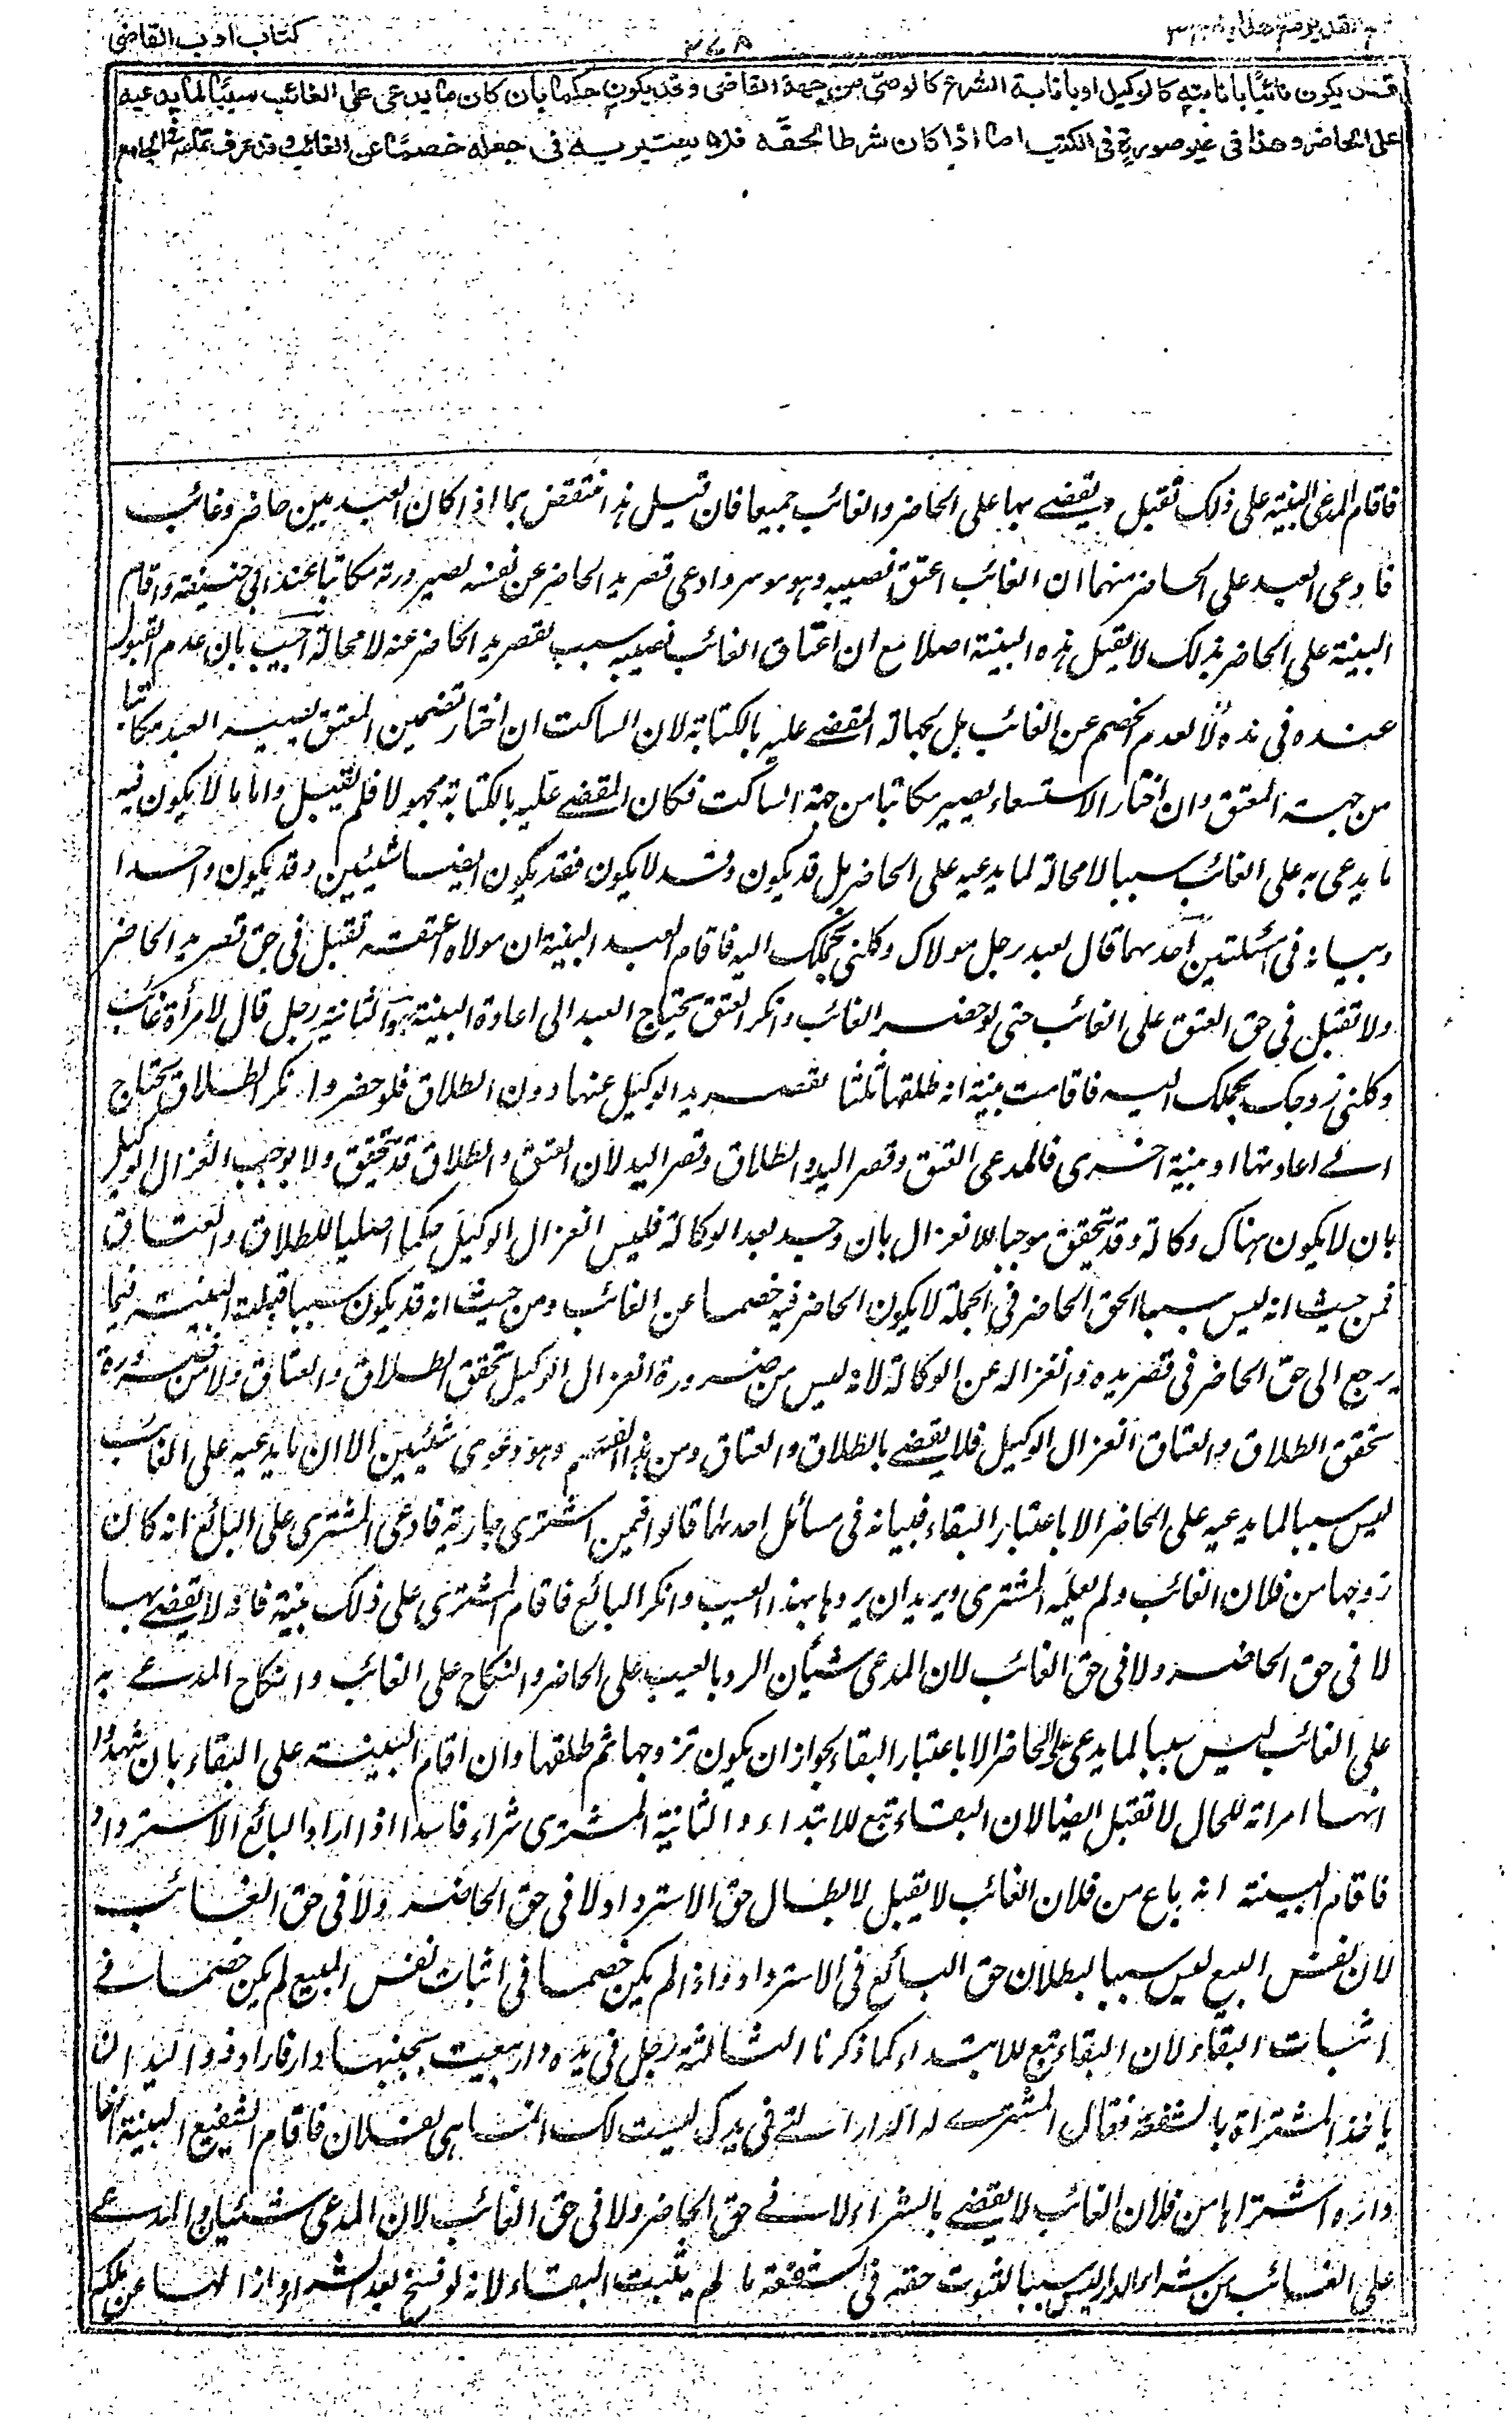 كتاب ادب القاضي
وقد يكون نائبًا بانابته كالوكيل او بانابة الشرع كالوصي من جهة القاضي وقد يكون حكما بان كان ما يدعى على الغائب سببًا لما يدعيه
على الحاضر وهذا في غير صورة في الكتب اما اذا كان شرطا لحقه فلا يعتبر به في جعله خصمًا عن الغائب وقد عرف تمامه في الجامع
فاقام المدعى البينة على ذلك تقبل ويقضے بها على الحاضر والغائب جميعا فان قيل هذا منتقض بما اذا كان العبد بين حاضر وغائب
فادعى العبد على الحاضر منهما ان الغائب اعتق نصيبه وهو موسر وادعى قصر يد الحاضر عن نفسه لصيرورته مكاتبا عند ابى حنيفة واقام
البينة على الحاضر بذلك لا يقبل هذه البينة اصلا مع ان اعتاق الغائب نصيبه سبب لقصر يد الحاضر عنه لا محالة اجيب بان عدم القبول
عنده فى هذه لا لعدم الخصم عن الغائب بل لجهالة المقضے عليه بالكتابة لان الساكت ان اختار تضمين المعتق يصير العبد مكاتبا
من جهة المعتق وان اختار الاستسعاء يصير مكاتبا من جهة الساكت فكان المقضے عليه بالكتابة مجهولا فلم تقبل واما ما لا يكون فيه
ما يدعى به على الغائب سببا لا محالة لما يدعيه على الحاضر بل قد يكون وقد لا يكون فقد يكون ايضا شيئين وقد يكون واحدا
وبيانه فى مسئلتين احدهما قال لعبد رجل مولاك وكلنى بحملك اليه فاقام العبد البينة ان مولاه اعتقه تقبل فى حق قصر يد الحاضر
ولا تقبل فى حق العتق على الغائب حتى لو حضر الغائب وانكر العتق يحتاج العبد الى اعادة البينة والثانية رجل قال لامرأة غائب
وكلنى زوجك بحملك اليه فاقامت بينة انه طلقها ثلثا تقصر يد الوكيل عنها دون الطلاق فلو حضر وانكر الطلاق يحتاج
الے اعادتها او بينة اخرى فالمدعى العتق وقصر اليد والطلاق وقصر اليد لان العتق والطلاق قد تحقق ولا يوجب انعزال الوكيل
بان لا يكون هناك وكالة وقد تحقق موجبا للانعزال بان وجد بعد الوكالة فليس انعزال الوكيل حكما اصليا للطلاق والعتاق
فمن حيث انه ليس سببا لحق الحاضر فى الجملة لا يكون الحاضر فيه خصما عن الغائب ومن حيث انه قد يكون سببا قبلت البينة فيما
يرجع الى حق الحاضر فى قصر يده وانعزاله عن الوكالة لانه ليس من ضرورة انعزال الوكيل تحقق الطلاق والعتاق ولا من ضرورة
تحقق الطلاق والعتاق انعزال الوكيل فلا يقضے بالطلاق والعتاق ومن هذا القسم وهو دعوى شيئين الا ان ما يدعيه على الغائب
ليس سببا لما يدعيه على الحاضر الا باعتبار البقاء فبيانه فى مسائل احدها قالوا فيمن اشترى جارية فادعى المشترى على البائع انه كان
زوجها من فلان الغائب ولم يعلمه المشترى ويريد ان يردها بهذا العيب وانكر البائع فاقام المشترى على ذلك بينة فانه لا يقضے بها
لا فى حق الحاضر ولا فى حق الغائب لان المدعى شيئان الرد بالعيب على الحاضر والنكاح على الغائب والنكاح المدعے به
على الغائب ليس سببا لما يدعى على الحاضر الا باعتبار البقاء لجواز ان يكون تزوجها ثم طلقها وان اقام البينة على البقاء بان شهدوا
انها امراته للحال لا تقبل ايضا لان البقاء تبع للابتداء والثانية المشترى شراء فاسدا اذا اراد البائع الاسترداد
فاقام البينة انه باع من فلان الغائب لا يقبل لابطال حق الاسترداد لا فى حق الحاضر ولا فى حق الغائب
لان نفس البيع ليس سببا لبطلان حق البائع فى الاسترداد واذا لم يكن خصما فى اثبات نفس البيع لم يكن خصما فے
اثبات البقاء لان البقاء تبع للابتداء كما ذكرنا الثالثة رجل فى يده دار بيعت بجنبها دار فاراد ذو اليد ان
ياخذ المشتراة بالشفعة فقال المشترے له الدار التے فى يدك ليست لك انما هى لفلان فاقام الشفيع البينة انها
داره اشتراها من فلان الغائب لا يقضے بالشراء لا فے حق الحاضر ولا فى حق الغائب لان المدعى شيئان والمدعے
على الغائب من شراء الدار ليس سببا لثبوت حقه فى الشفعة ما لم يثبت البقاء لانه لو فسخ بعد الشراء وازالها عن ملكه